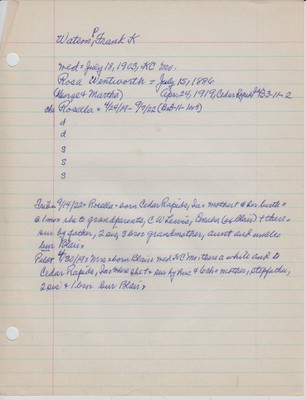 Watson, Frank K
P
med = July 18, 1903, KC Mo.
Rosa Wentworth = July 15, 1886
(George & Martha) Apr 24, 1919, Cedar Rapids, Ia B3-11-2
ch: Rosella = 4/24/19 - 9/7/22 (B3-11-
d
d
d
s
s
s
Trib = 9/14/22 = Rosella = born Cedar Rapids, Ia = mother d her birth =
@ 1 mo = she to grandparents, C W Lewis, (of Blair) & there =
sur by father, 2 sis, 3 bros grandmother, aunt and uncles
bur Blair.
Pilot 4/30/19 = Mrs = born Blair = med KC Mo, there a while and to
Cedar Rapids, Ia = = sur by hus & 6 ch = mother, stepfather,
2 sis & 1 bro bur Blair.